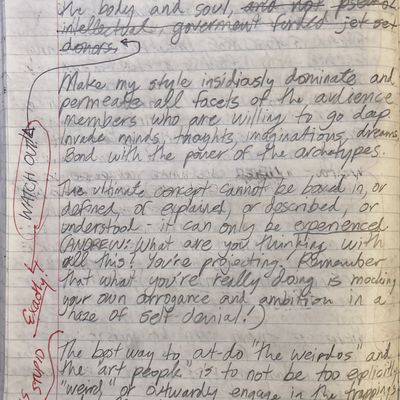 the body and soul, and not pseudo
intellectual, goverment funded jet set
donors.
Make my style insidiously dominate and
permeate all facets of the audience
members who are willing to go deep
Invade minds, thoghts, imaginations, dreams.
Bond with the power of the archetypes.
The ultimate concept cannot be bound in, or
defined, or explained, or described, or
understood - it can only be experienced.
(ANDREW: What are you thinking with
all this? You're projecting! Remember
that what you're really doing is mocking
your own arrogance and ambition in a
haze of self denial!)
The best way to at-do "the weirdos" and
the "art people" is to not be too explicitly
"weird" or outwardly engage in the trappings
WATCH OUT
Exactly!
STUPID